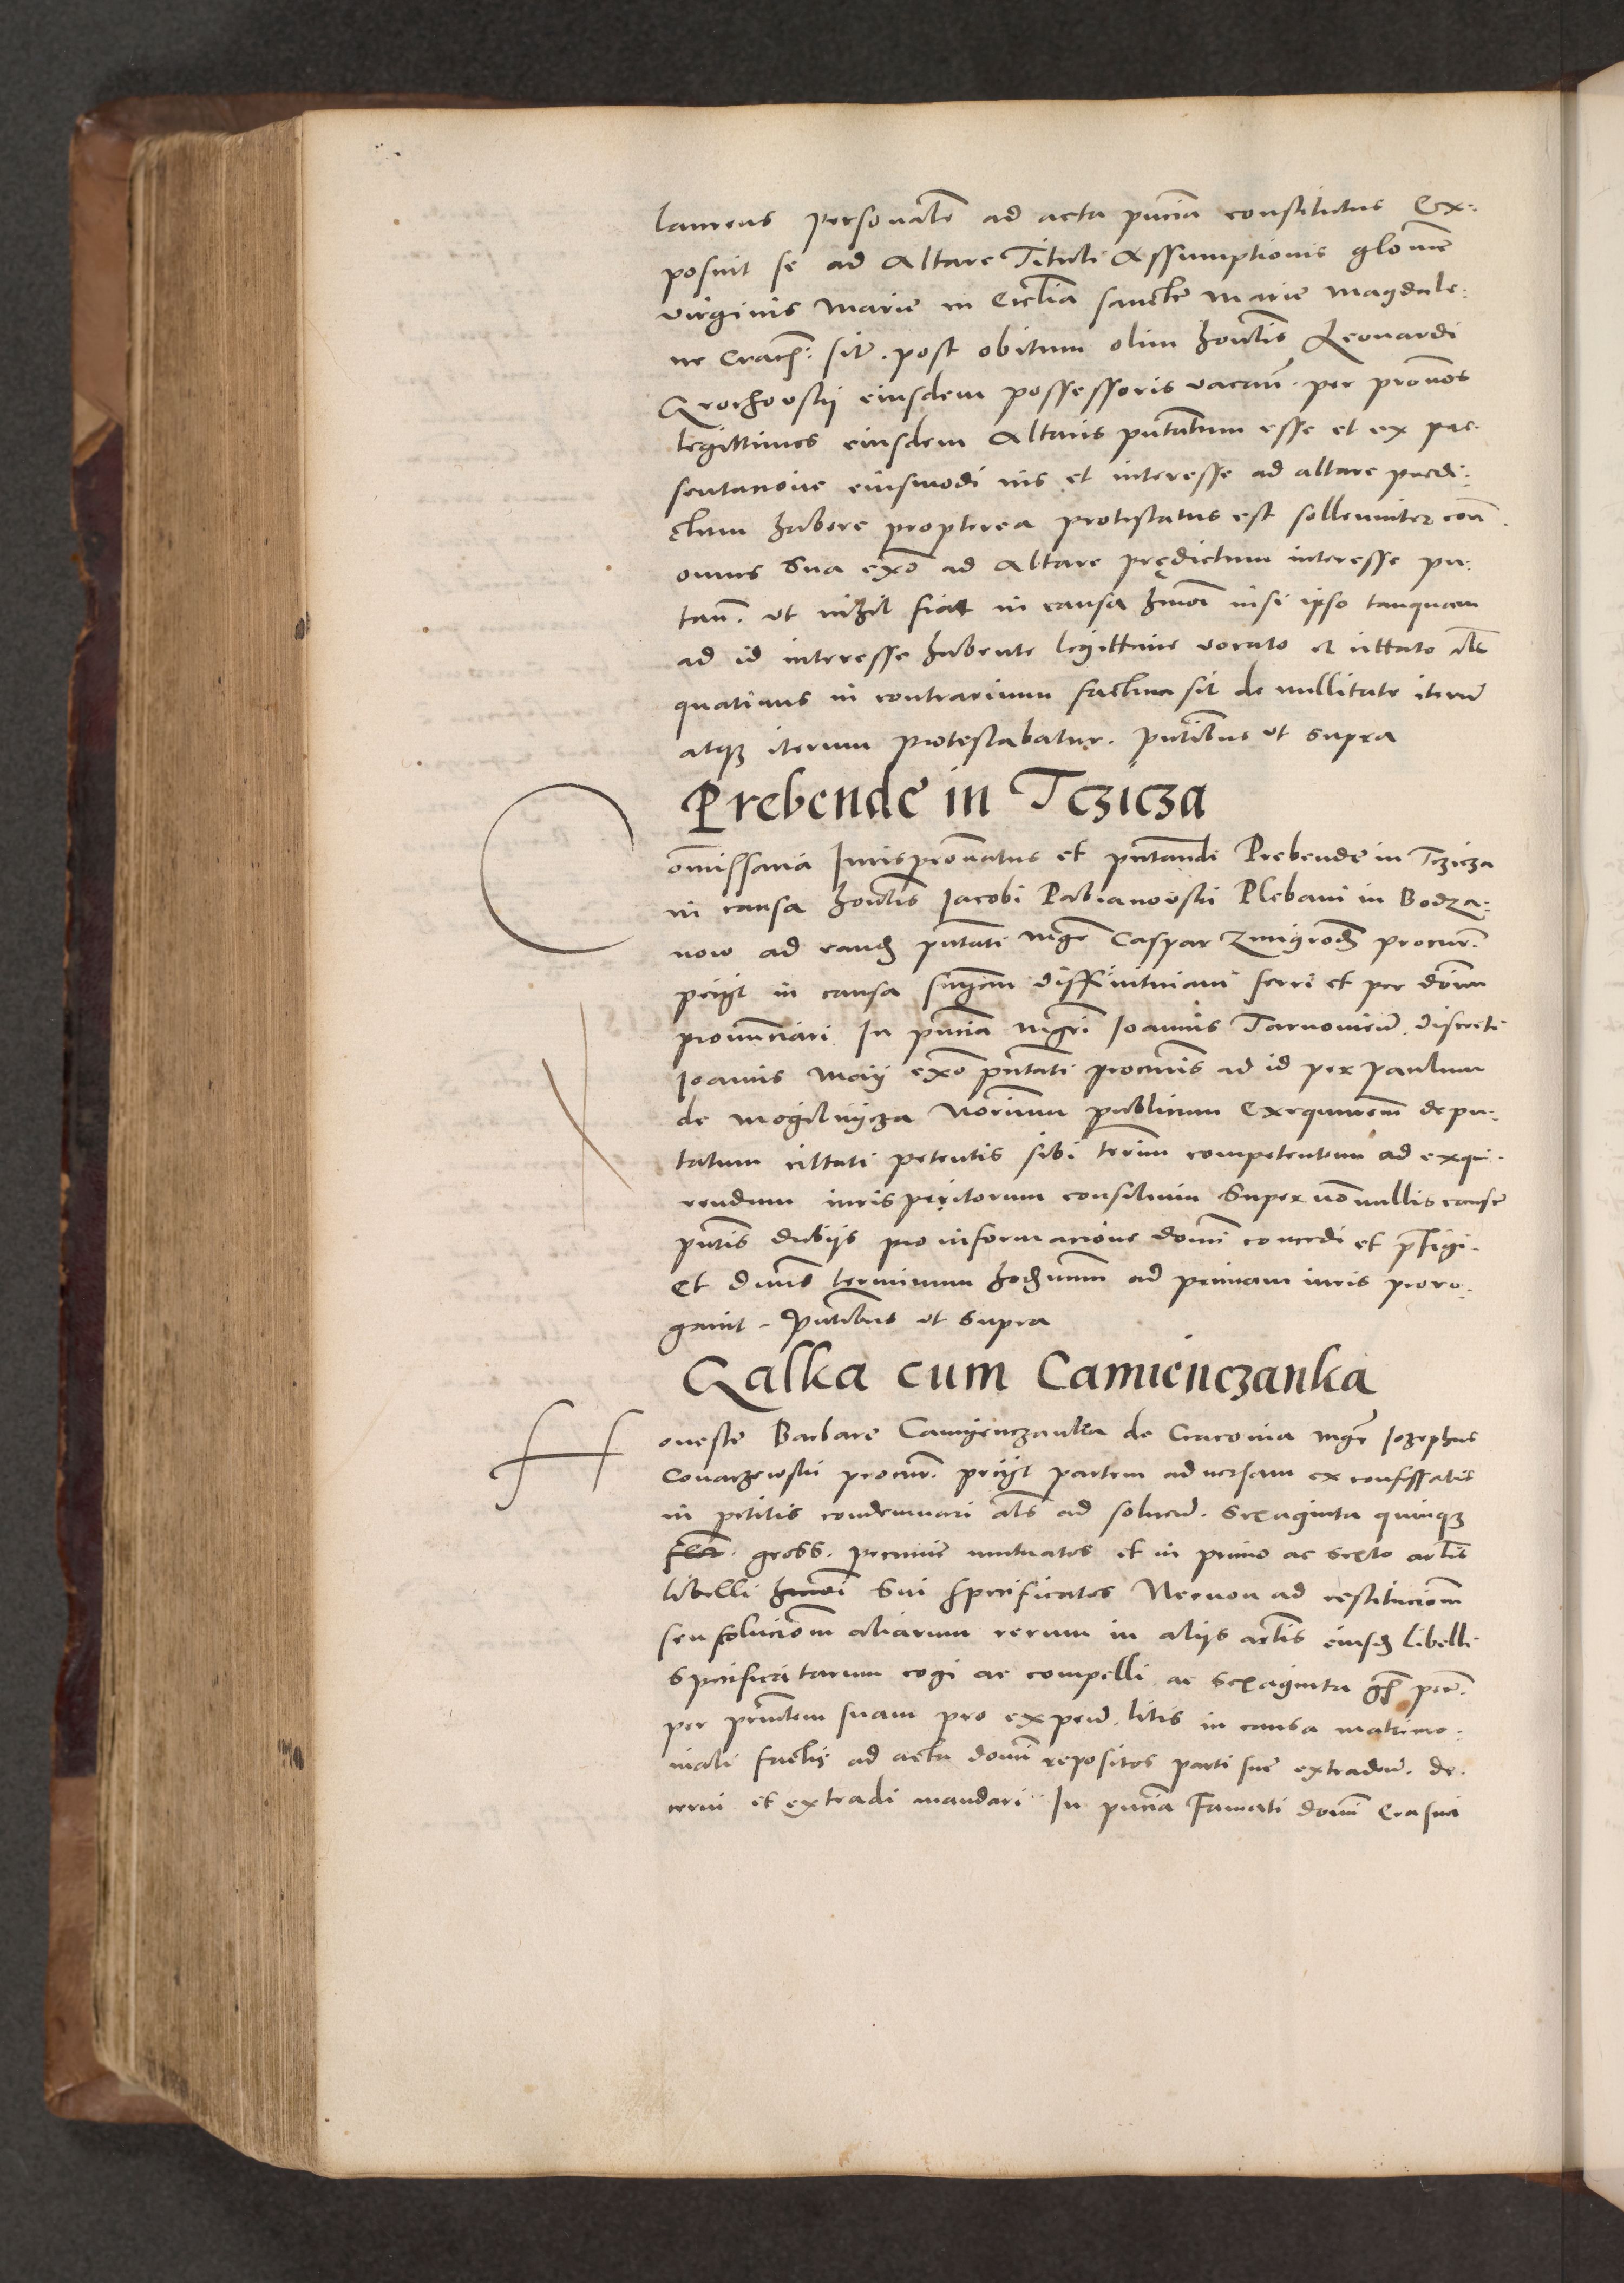 laureus personalr̃ ad acta pñcia constitutus Ex:
posuit se ad Altare Tituli Assumptionis gloriose
virginis Marie in Ecclia sancte Marie Magdale:
ne Crac: sit. post obitum olim honlis Leonardi
Grochowskij eiusdem possessoris vacañ. per pronos
legittimos eiusdem Altaris pñtatum esse et ex pre.
sentacione eiusmodi ius et interesse ad altare predi:
ctum habere propterea protestatus est sollemniter con.
omnes sua exõ ad Altare prędictum interesse pu.
tañ. ut nihil fiat in causa hmõi nisi ipso tanquam
ad id interesse habente legittime vocato et cittato als
quatinus in contrarium factum sit de nullitate iterũ
atqз iterum protestabatur. pñtibus ut supra
Prebende in Tczicza
Commissaria Iurispronatus et pñtandi Prebende in Tczicza
in causa honlis Jacobi Pabianowski Plebani in Bodza:
now ad eand pñtati mgr Caspar Zmigrod procur.
peciit in causa sñiam diffinitiuam ferri et per dõm
pronunciari In pñcia mgri Joannis Tarnowieñ. discreti
Joannis Maij exõ pñtati procuris ad id per Paulum
de Mogilnycza Norium publicum Exequutorem depu:
tatum cittati petentis sibi terim competentem ad exqui.
rendum iuris peritorum consilium super nõnullis cause
pñtis dubijs pro informacione domi concedi et prefigi.
Et dñus terminum hodiernum ad primam iuris proro.
gauit. Pñtibus ut supra
Galka cum Camienczanka
Honeste Barbare Camyenczanka de Cracovia mgr Jozephus
Conarzewski procur. peciit partem aduersam ex confessatis
in petitis condemnari als ad soluend. Sexaginta quinqз
flor. gross. pecunie mutuatos et in primo ac sexto artlis
libelli hmõi sui specificatos Necnon ad restitucionem
seu solucionem aliarum rerum in alijs artlis eiusd Libelli
specificatarum cogi ac compelli ac sexaginta gr pec.
per principalem suam pro expens. litis in causa matrimo:
niali factis ad acta domi repositos parti sue extradend. de.
cerni et extradi mandari In pñcia Famati domi Erasmi